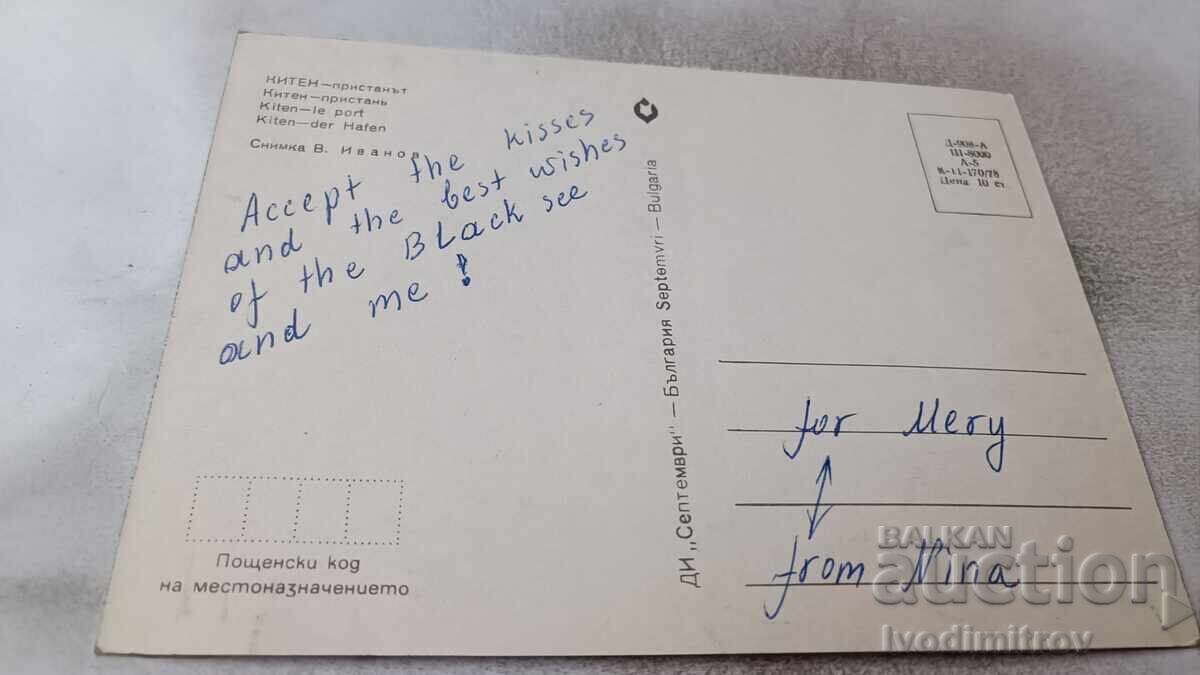 КИТЕН—пристанът
Китен—пристань
Kiten—le port
Kiten—der Hafen
Снимка В. Иванов
Accept the kisses
and the best wishes
of the Black see
and me!
Пощенски код
на местоназначението
ДИ „Септември" — България Septemvri — Bulgaria
Д-908-А
Ш-8000
Л-5
К-11-170/78
Цена 10 ст.
for Mery
from Nina
BALKAN
auction
Ivodimitrov